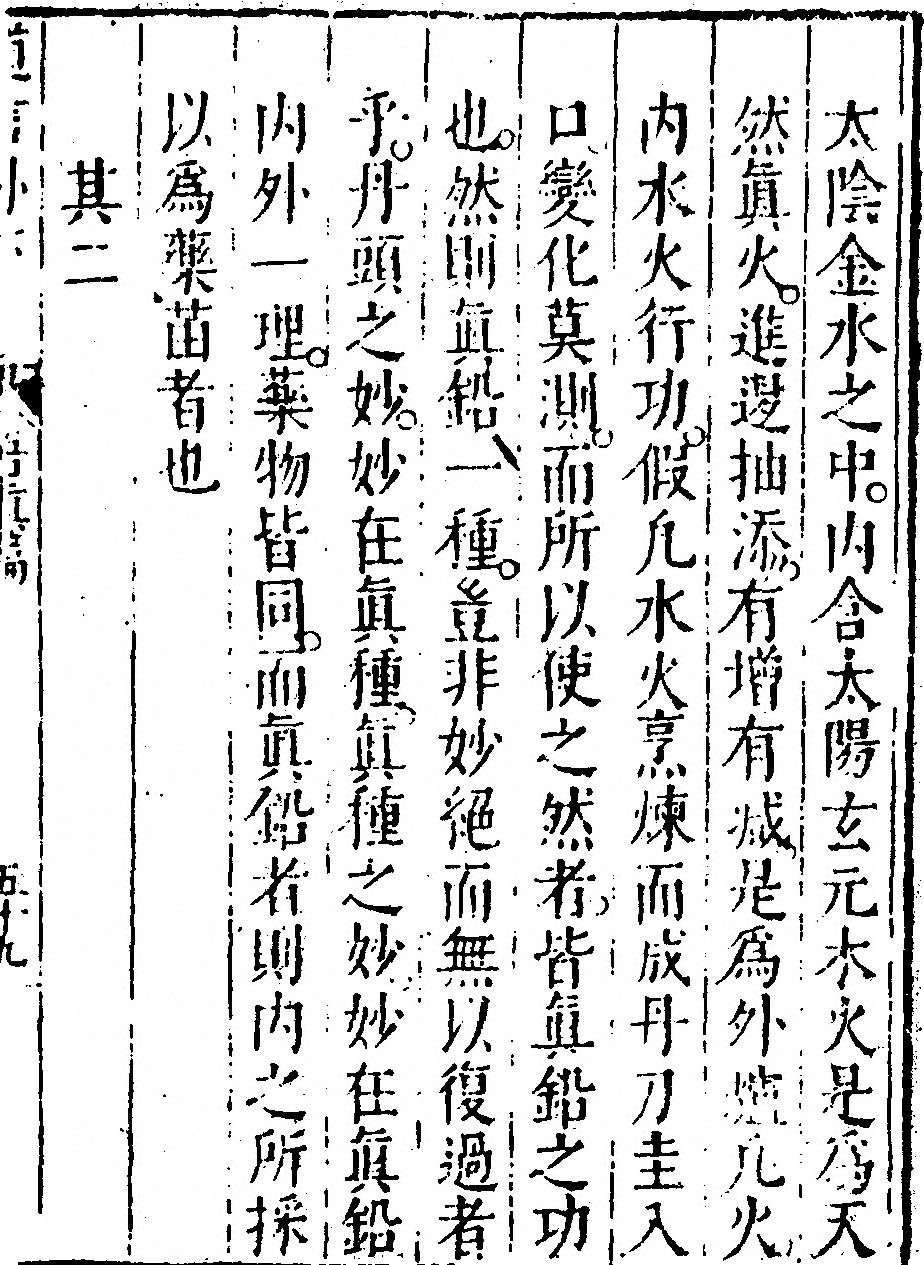 太陰金水之中内含太陽玄元木火是爲天
然眞火進退抽添有增有減是爲外爐凡火
内水火行功假凡水火烹煉而成丹刀圭入
口變化莫測而所以使之然者皆眞鉛之功
也然則眞鉛一種豈非妙絕而無以復過者
乎丹頭之妙妙在眞種眞種之妙妙在眞鉛
内外一理藥物皆同而眞鉛者則内之所採
以爲藥苗者也
其二
五十九